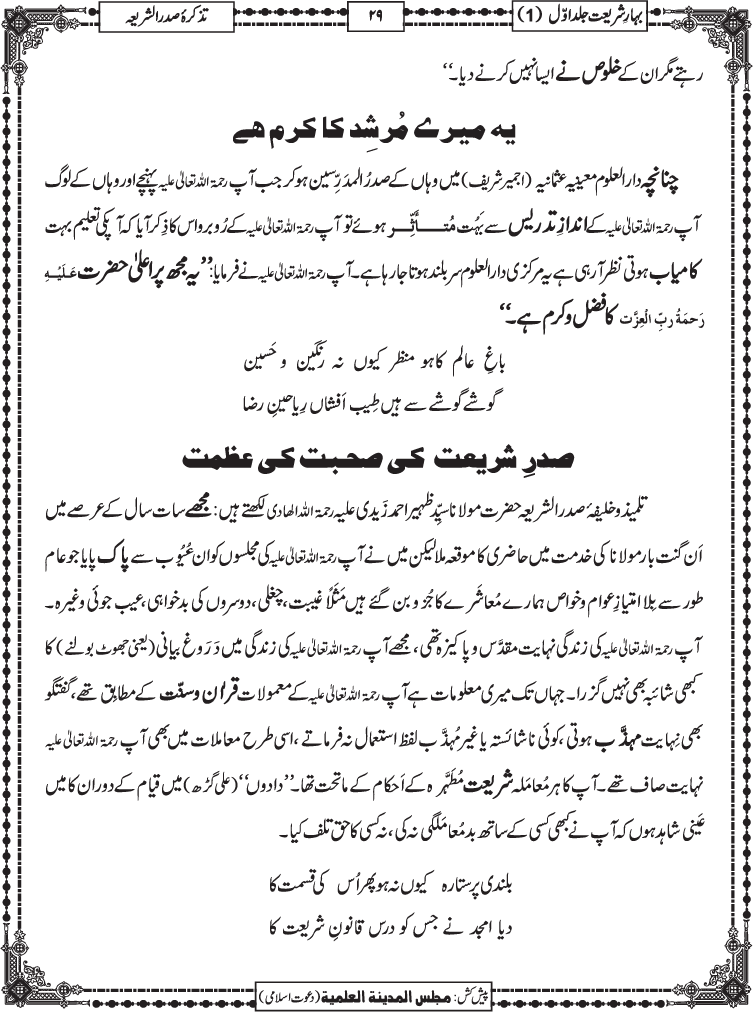 بہارِ شریعت جلد اوّل (1)
۲۹
تذکرۂ صدر الشریعہ
رہتے مگر ان کے خلوص نے ایسا نہیں کرنے دیا۔‘‘
یہ میرے مُرشِد کا کرم ھے
چنانچہ دارالعلوم معینیہ عثمانیہ (اجمیر شریف) میں وہاں کے صدرُ المدرِّسین ہو کر جب آپ رحمۃ اللہ تعالیٰ علیہ پہنچے اور وہاں کے لوگ
آپ رحمۃ اللہ تعالیٰ علیہ کے اندازِ تدریس سے بہُت مُتَــأَثِّـر ہوئے تو آپ رحمۃ اللہ تعالیٰ علیہ کے رُوبرو اس کا ذِکر آیا کہ آپ کی تعلیم بہت
کامیاب ہوتی نظر آرہی ہے یہ مرکزی دارالعلوم سربلند ہوتا جارہا ہے۔ آپ رحمۃ اللہ تعالیٰ علیہ نے فرمایا: ’’یہ مجھ پر اعلیٰ حضرت عَـلَـیْـہِ
رَحمَۃُ ربِّ الْعِزَّت کا فضل و کرم ہے۔‘‘
باغِ عالم کا ہو منظر کیوں نہ رنگین و حَسین
گوشے گوشے سے ہیں طِیب اَفشاں رِیاحینِ رضا
صدرِ شریعت کی صحبت کی عظمت
تلمیذ و خلیفۂ صدر الشریعہ حضرت مولانا سیِّد ظہیر احمد زَیدی علیہ رحمۃ اللہ الھادی لکھتے ہیں: مجھے سات سال کے عرصے میں
اَن گنت بار مولانا کی خدمت میں حاضری کا موقعہ ملا لیکن میں نے آپ رحمۃ اللہ تعالیٰ علیہ کی مجلسوں کو ان عُیُوب سے پاک پایا جو عام
طور سے بِلا امتیازِ عوام و خواص ہمارے مُعاشَرے کا جُزو بن گئے ہیں مَثَلًا غیبت، چغلی، دوسروں کی بدخواہی، عیب جوئی وغیرہ۔
آپ رحمۃ اللہ تعالیٰ علیہ کی زندگی نہایت مقدَّس و پاکیزہ تھی، مجھے آپ رحمۃ اللہ تعالیٰ علیہ کی زندگی میں دَرَوغ بیانی (یعنی جھوٹ بولنے) کا
کبھی شائبہ بھی نہیں گزرا۔ جہاں تک میری معلومات ہے آپ رحمۃ اللہ تعالیٰ علیہ کے معمولات قران وسنّت کے مطابِق تھے، گفتگو
بھی نِہایت مہذَّب ہوتی، کوئی ناشائستہ یا غیر مُہذَّب لفظ استعمال نہ فرماتے، اسی طرح معاملات میں بھی آپ رحمۃ اللہ تعالیٰ علیہ
نہایت صاف تھے۔ آپ کا ہر مُعامَلہ شریعت مُطَہَّرہ کے اَحکام کے ماتحت تھا۔ ’’دادوں‘‘ (علی گڑھ) میں قیام کے دوران کا میں
عَینی شاہد ہوں کہ آپ نے کبھی کسی کے ساتھ بدمُعامَلگی نہ کی، نہ کسی کا حق تلف کیا۔
بلندی پر ستارہ کیوں نہ ہو پھر اُس کی قسمت کا
دیا امجد نے جس کو درس قانونِ شریعت کا
پیش کش: مجلس المدینۃ العلمیۃ (دعوتِ اسلامی)